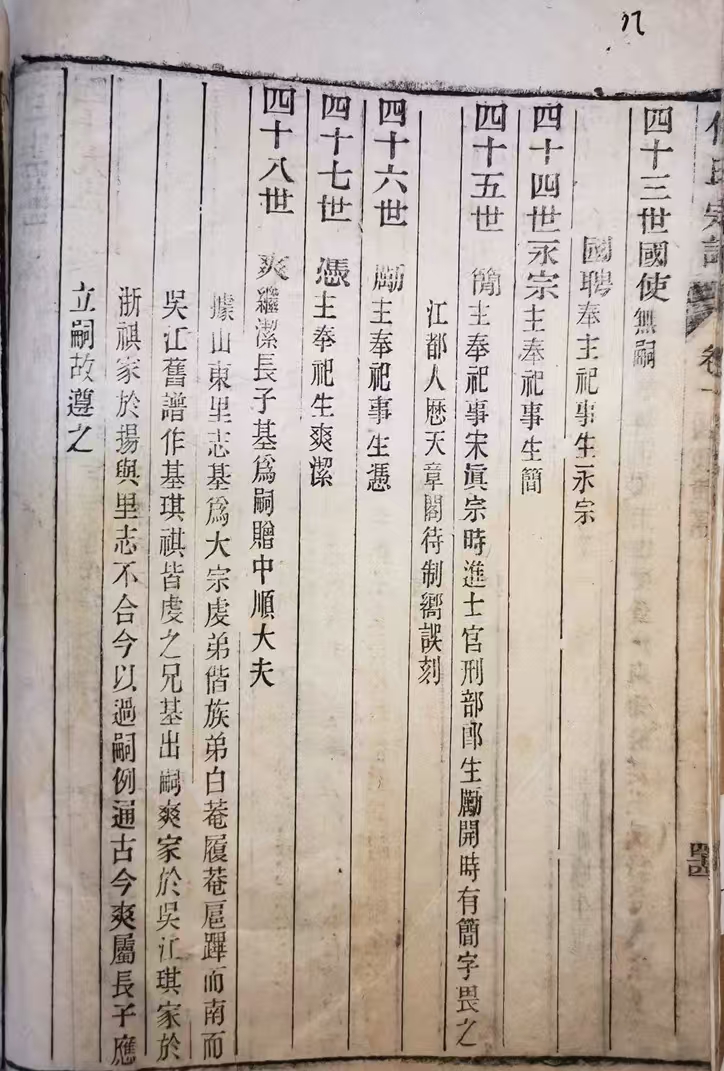 氏宗譜 卷一
四十三世國使無嗣
國聘奉主祀事生永宗
四十四世永宗主奉祀事生簡
四十五世 簡主奉祀事宋眞宗時進士官刑部郎生勵開時有簡字畏之
江都人歷天章閣待制嚮誤刻
四十六世 勵主奉祀事生憑
四十七世 憑主奉祀生爽潔
四十八世 爽繼潔長子基爲嗣贈中順大夫
據山東里志基爲大宗虔弟偕族弟白菴履菴扈蹕而南而
吳江舊譜作基琪祺皆虔之兄基出嗣爽家於吳江琪家於
浙祺家於揚與里志不合今以過嗣例通古今爽屬長子應
立嗣故遵之